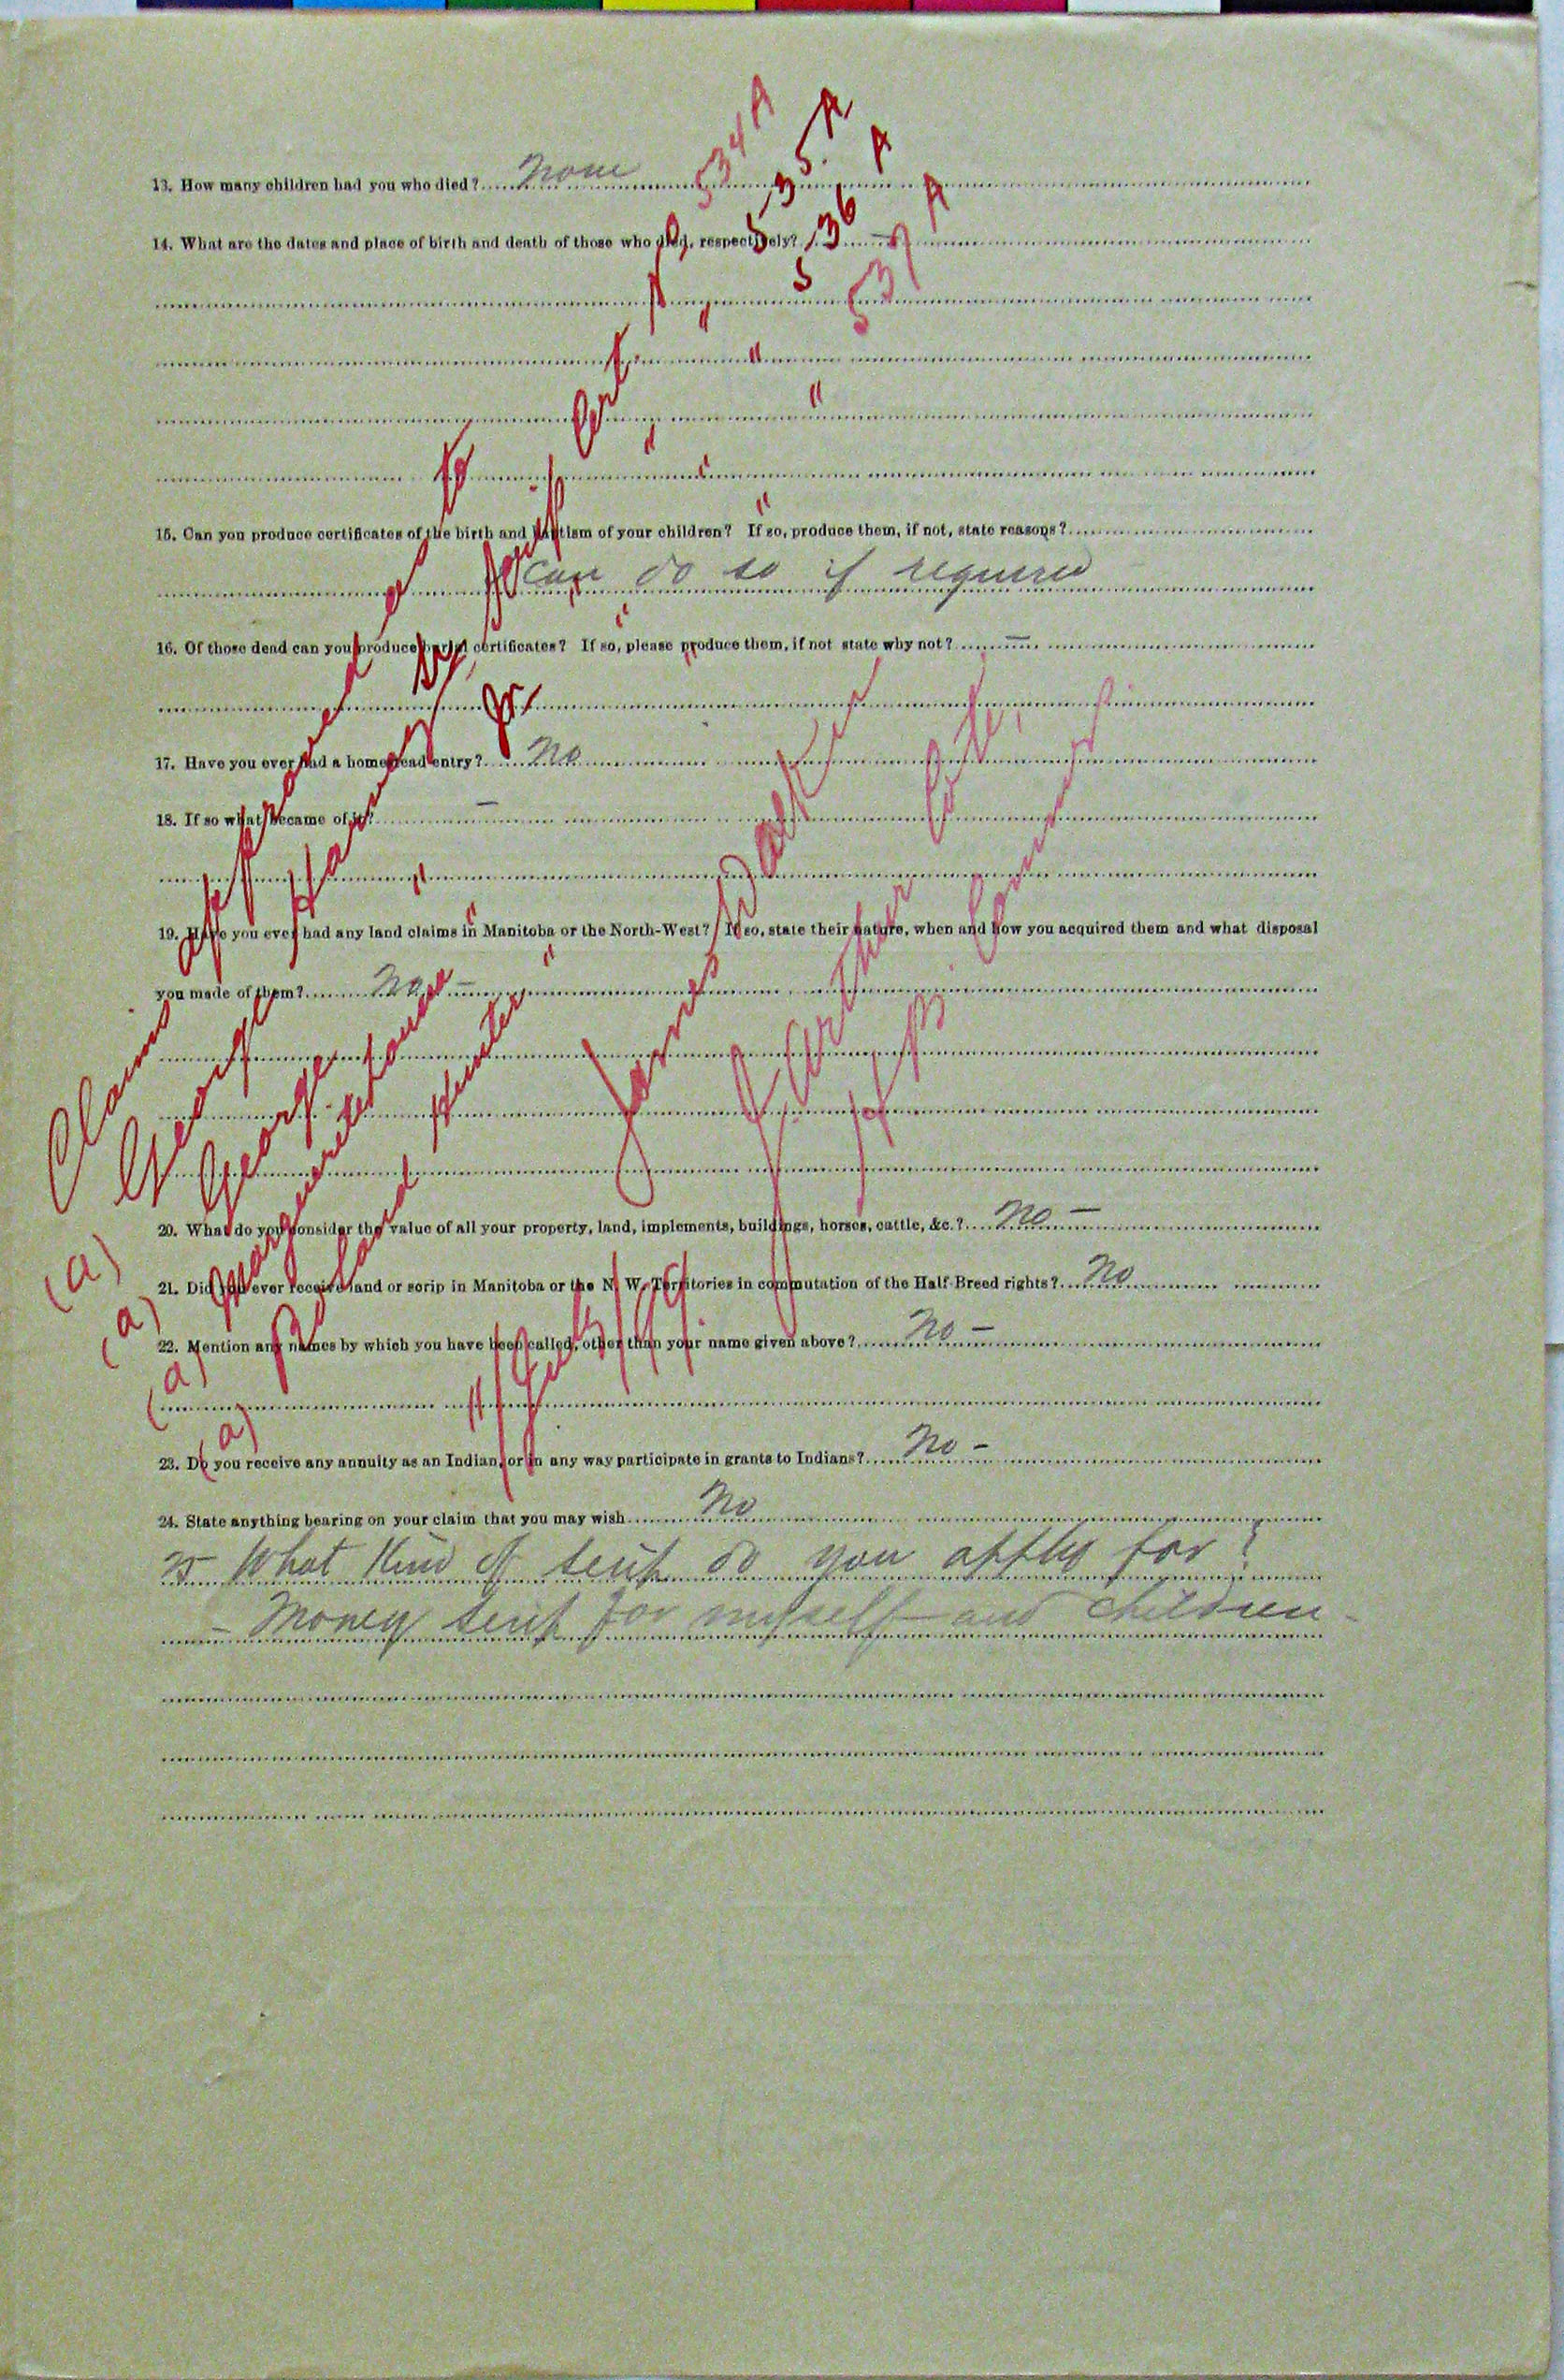 13. How many children had you who died? None
14. What are the dates and place of birth and death of those who died, respectively? —
15. Can you produce certificates of the birth and baptism of your children? If so, produce them, if not, state reasons?
Can do so if required
16. Of those dead can you produce burial certificates? If so, please produce them, if not state why not? —
17. Have you ever had a homestead entry? No
18. If so what became of it? —
19. Have you ever had any land claims in Manitoba or the North-West? If so, state their nature, when and how you acquired them and what disposal
you made of them? No —
20. What do you consider the value of all your property, land, implements, buildings, horses, cattle, &c.? No —
21. Did you ever receive land or scrip in Manitoba or the N. W. Territories in commutation of the Half-Breed rights? No
22. Mention any names by which you have been called, other than your name given above? No —
23. Do you receive any annuity as an Indian, or in any way participate in grants to Indians? No —
24. State anything bearing on your claim that you may wish No
25 What Kind of scrip do you apply for?
— Money scrip for myself and children —
Claims approved &
(a) George Harney Sr, 534 A
(a) George " Jr, " " 535 A
(a) Marguerite " " " 536 A
(a) " " " 537 A
James Walker
J. Arthur Coté,
H. B. Commrs
11/July/99